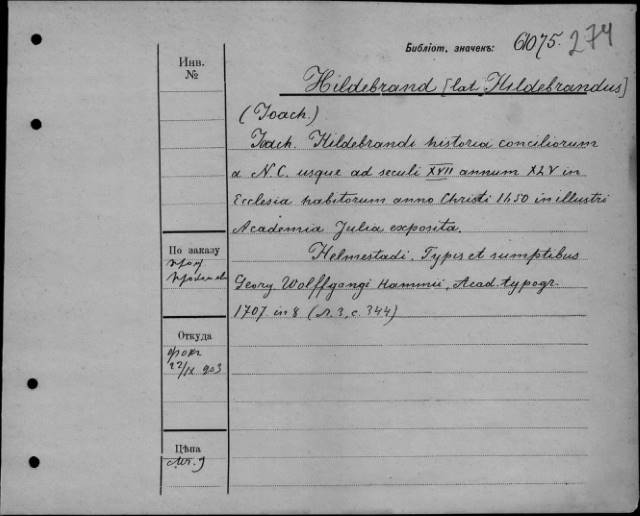 Библіот. значекъ: 6075. 274
Инв. №
Hildebrand [lat. Hildebrandus]
(Joach.)
Joach. Hildebrandi historia conciliorum
a N.C. usque ad seculi XVII annum XLV in
Ecclesia habitorum anno Christi 1650 in illustri
Academia Julia exposita.
Helmestadi. Typis et sumptibus
Georg Wolffgangi Hammii, Acad. typogr.
1707 in 8 (л. 3, с. 344)
По заказу
проф
Откуда
22/IX 903
Цѣна